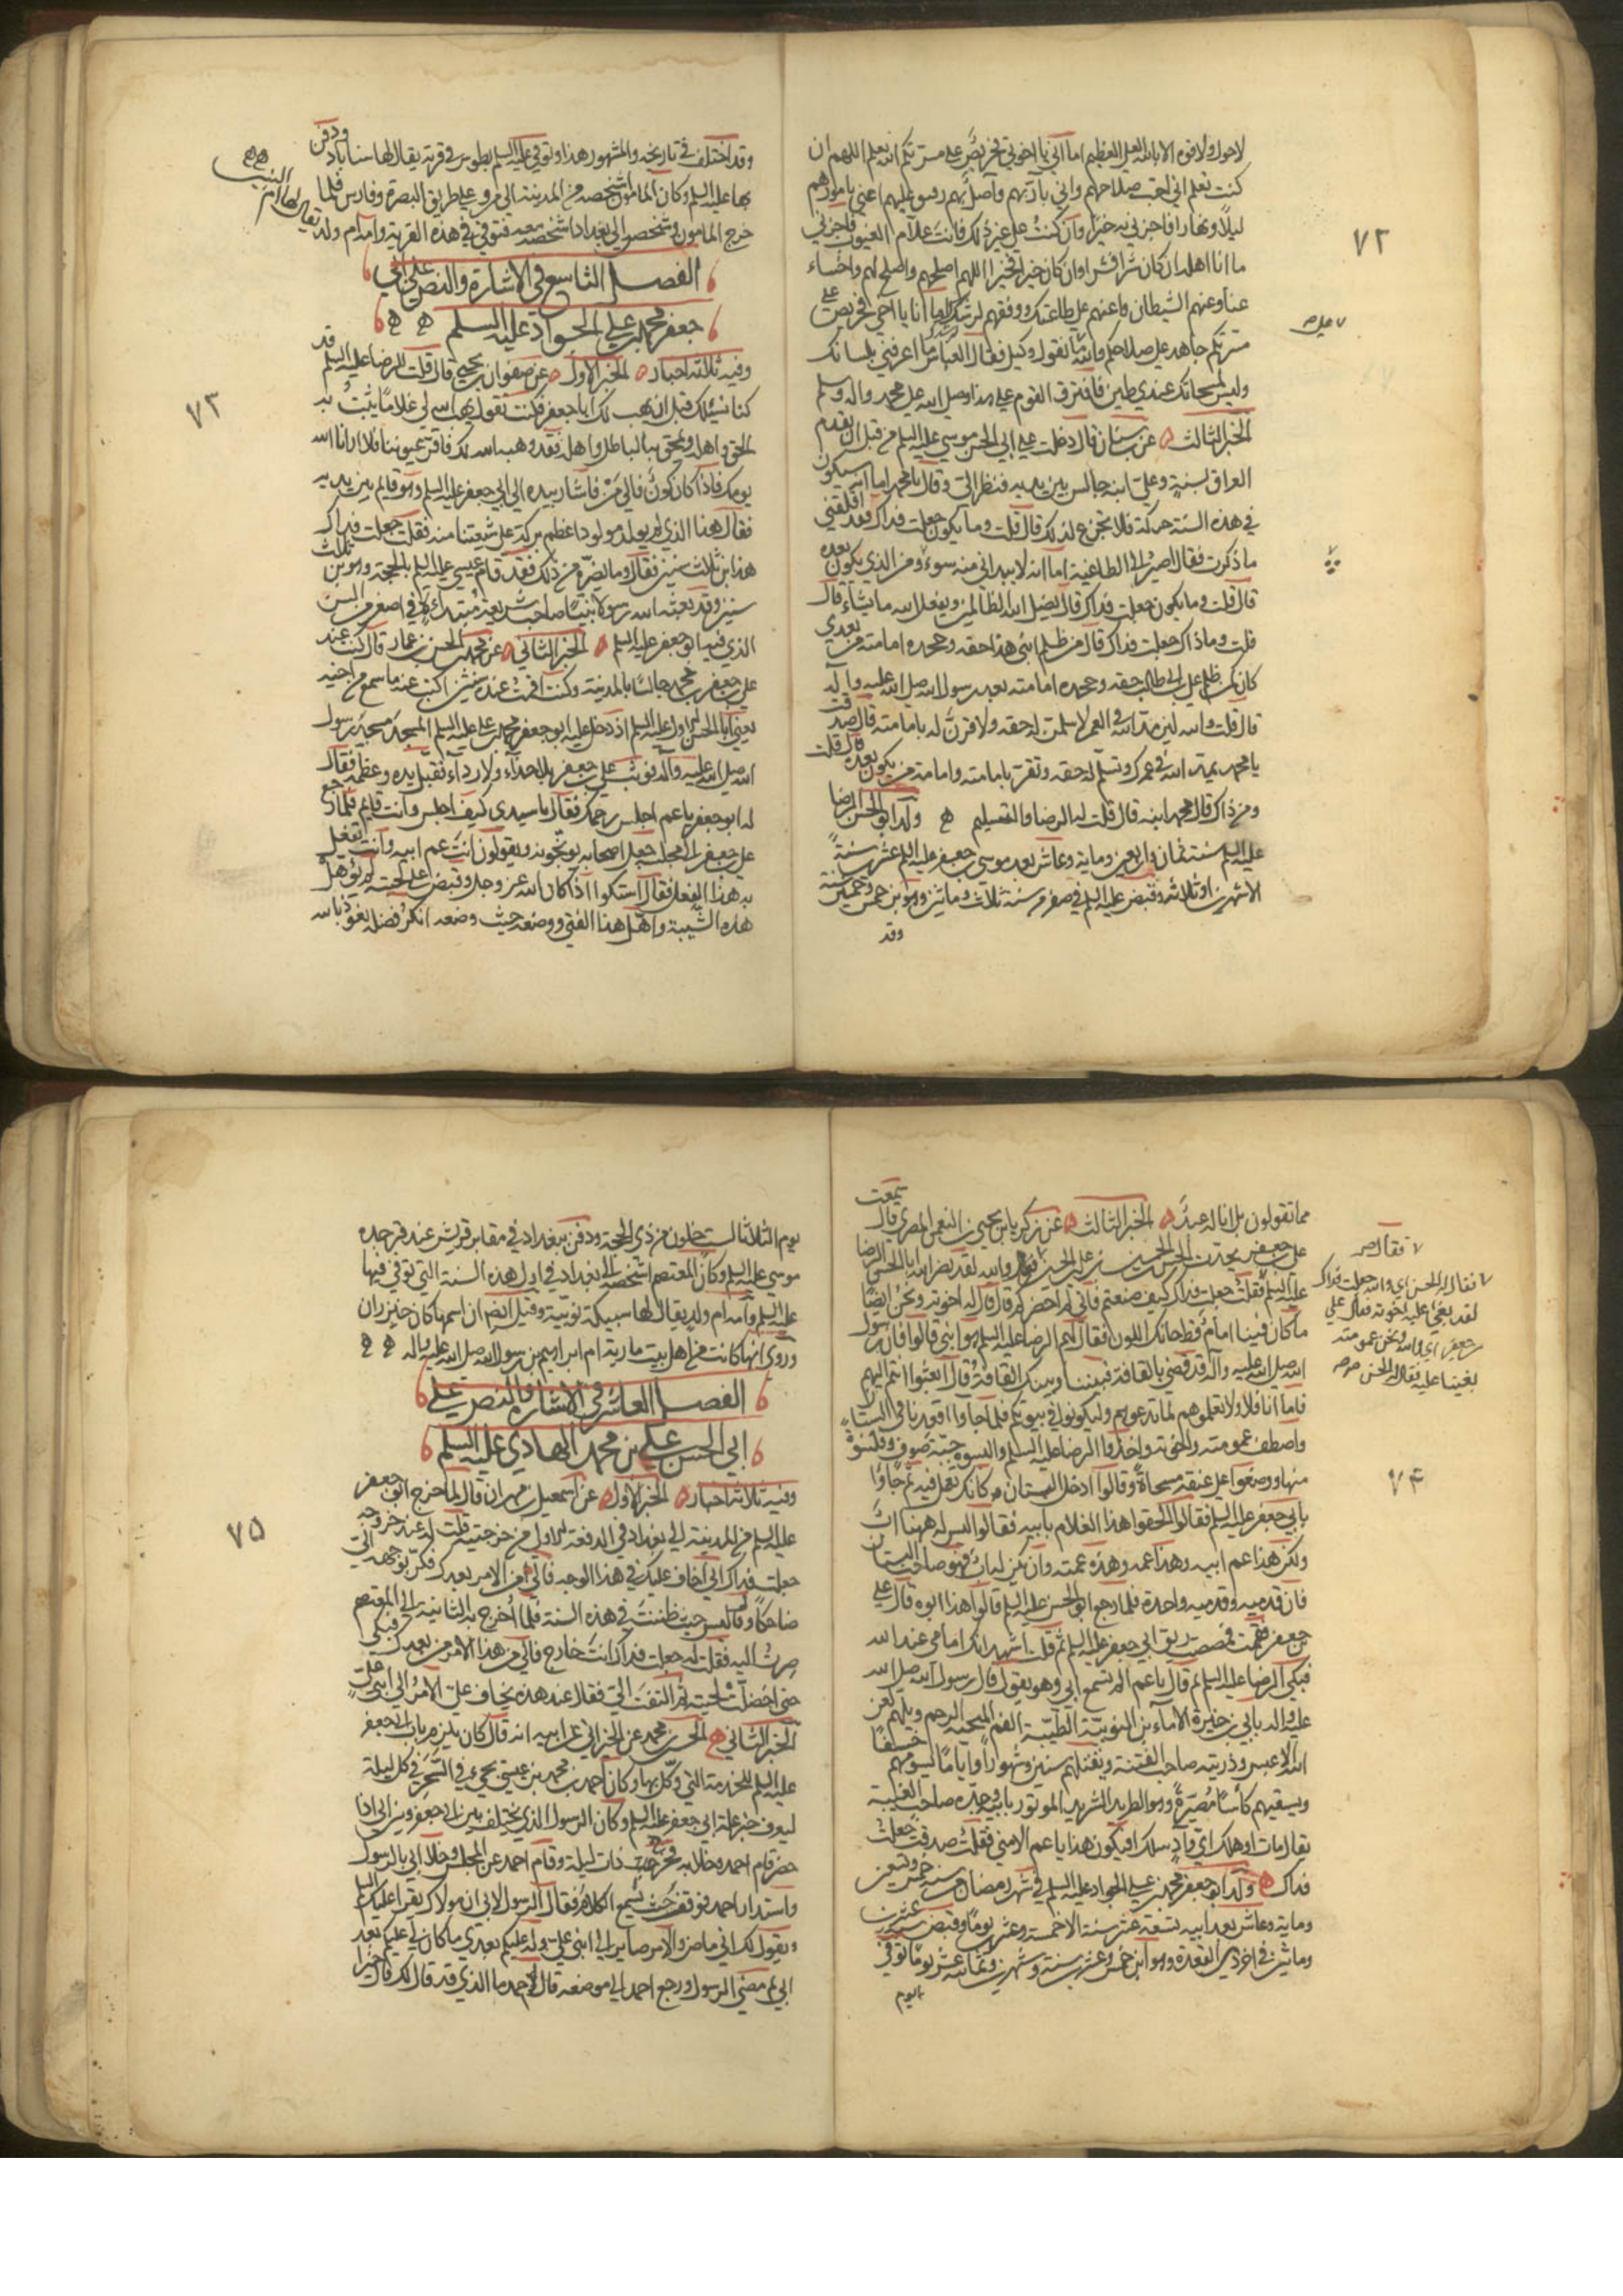 لاحول ولا قوة الا بالله العلي العظيم اما اني يا اخوتي فحريص علي مسرتكم الله يعلم اللهم ان
كنت تعلم اني احب صلاحهم واني بار بهم واصل لهم رفيق عليهم اعني بامورهم
ليلا ونهارا فاجزني به خيرا وان كنت على غير ذلك فانت علام الغيوب فاجزني
ما انا اهله ان كان شرا فشرا وان كان خيرا فخيرا اللهم اصلحهم واصلح لهم واخساء
عنا وعنهم الشيطان واعنهم على طاعتك ووفقهم لرشدك اما انا يا اخي فحريص على
مسرتكم جاهد على صلاحكم والله على ما نقول وكيل فقال العباس ما اعرفني بلسانك
وليس لمسحاتك عندي طين فافترق القوم علي هذا وصلى الله على محمد واله وسلم
الخبر الثالث عن بن سنان قال دخلت علي ابي الحسن موسى عليه السلم من قبل ان يقدم
العراق بسنة وعلي ابنه جالس بين يديه فنظر الي وقال يا محمد اما انه سيكون
في هذه السنة حركة فلا تجزع لذلك قال قلت وما يكون جعلت فداك فقد اقلقني
ما ذكرت فقال اصير الى الطاغية اما انه لا يبداني منه سوء ومن الذي يكون بعده
قال قلت وما يكون جعلت فداك قال يضل الله الظالمين ويفعل الله ما يشاء قال
قلت وما ذاك جعلت فداك قال من ظلم ابني هذا حقه وجحده امامته من بعدي
كان كمن ظلم علي بن ابي طالب حقه وجحده امامته بعد رسول الله صلى الله عليه وآله
قال قلت والله لين مد الله في العمر لاسلمن له حقه ولاقرن له بامامته قال صدقت
يا محمد يمد الله في عمرك وتسلم له حقه وتقر بامامته وامامة من يكون بعده قال قلت
ومن ذاك قال محمد ابنه قال قلت له الرضا والتسليم ولد ابو الحسن الرضا
عليه السلم سنة ثمان واربعين وماية وعاش بعد موسى بن جعفر عليه السلم عشرين سنة
الا شهرين او ثلاثة وقبض عليه السلم في صفر من سنة ثلاث وماتين وهو بن خمس وخمسين سنة
وقد
٧٢
وقد اختلف في تاريخه والمشهور هذا وتوفي عليه السلم بطوس في قرية يقال لها سناباد ودفن
بها عليه السلم وكان المامون اشخصه من المدينة الى مرو على طريق البصرة وفارس فلما
خرج المامون وشخص الى بغداد اشخصه معه فتوفي في هذه القرية وامه ام ولد يقال لها ام البنين
الفصل التاسع في الاشارة والنص على ابي
جعفر محمد بن علي الجواد عليه السلم
وفيه ثلاثة اخبار الخبر الاول عن صفوان بن يحيى قال قلت للرضا عليه السلم قد
كنا نسئلك قبل ان يهب لك ابا جعفر فكنت تقول يهب الله لي غلاما يثبت به
الحق واهله ويمحق به الباطل واهله فقد وهبه الله لك فاقر عيوننا فلا ارانا الله
يومك فاذا كان كون فالى من فاشار بيده الى ابي جعفر عليه السلم وهو قائم بين يديه
فقال هذا الذي لم يولد مولود اعظم بركة على شيعتنا منه فقلت جعلت فداك
هذا ابن ثلاث سنين فقال وما يضره من ذلك فقد قام عيسى عليه السلم بالحجة وهو بن ثلاث
سنين وقد بعثه الله رسولا نبيا صاحب شريعة مبتداءة في اصغر من السن
الذي فيه ابو جعفر عليه السلم الخبر الثاني عن محمد بن الحسن بن عمار قال كنت عند
علي بن جعفر بن محمد جالسا بالمدينة وكنت اقمت عنده سنتين اكتب عنه ما سمع من اخيه
يعني ابا الحسن الاول عليه السلم اذ دخل عليه ابو جعفر محمد بن علي عليه السلم المسجد مسجد رسول
الله صلى الله عليه وآله فوثب علي بن جعفر بلا حذاء ولا رداء فقبل يده وعظمه فقال
له ابو جعفر يا عم اجلس رحمك الله فقال يا سيدي كيف اجلس وانت قايم فلما رجع
علي بن جعفر الى مجلسه جعل اصحابه يوبخونه ويقولون انت عم ابيه وانت تفعل
به هذا الفعل فقال اسكتوا اذا كان الله عز وجل وقبض على لحيته لم يؤهل
هذه الشيبة واهل هذا الفتى ووضعه حيث وضعه انكر فضله نعوذ بالله
٧٣
مما تقولون بل انا له عبد الخبر الثالث عن زكريا بن يحيى بن النعمن المصري قال سمعت
علي بن جعفر يحدث الحسن بن الحسين بن علي بن الحسين فقال والله لقد نصر الله ابا الحسن الرضا
عليه السلم فقلت جعلت فداك كيف صنعتم فاني لم احضركم قال قال له اخوته ونحن ايضا
ما كان فينا امام قط حائل اللون فقال لهم الرضا عليه السلم هو ابني قالوا فان رسول
الله صلى الله عليه وآله قد قضى بالقافة فبيننا وبينك القافة قال ابعثوا انتم اليهم
فاما انا فلا ولا تعلموهم لما تدعونهم وليكونوا في بيوتكم فلما جاوا اقعدونا في البستان
واصطف عمومته واخوته واخذوا الرضا عليه السلم والبسوه جبة صوف وقلنسوة
منها ووضعوا على عنقه مسحاة وقالوا ادخل البستان كانك تعمل فيه ثم جاؤا
بابي جعفر عليه السلم فقالوا الحقوا هذا الغلام بابيه فقالوا ليس له ههنا اب
ولكن هذا عم ابيه وهذا عمه وهذه عمته وان يكن له اب فهو صاحب البستان
فان قدميه وقدميه واحدة فلما رجع ابو الحسن عليه السلم قالوا هذا ابوه قال علي
بن جعفر فقمت فمصصت ريق ابي جعفر عليه السلم ثم قلت اشهد انك امامي عند الله
فبكى الرضا عليه السلم ثم قال يا عم الم تسمع ابي وهو يقول قال رسول الله صلى الله
عليه وآله بابي بن خيرة الاماء بن النوبية الطيبة الفم المنتجبة الرحم ويلهم لعن
الله الاعبس وذريته صاحب الفتنة ويقتلهم سنين وشهورا واياما يسومهم خسفا
ويسقيهم كأسا مصبرة وهو الطريد الشريد الموتور بابيه وجده صاحب الغيبة
يقال مات او هلك اي واد سلك افيكون هذا يا عم الا مني فقلت صدقت جعلت
فداك ولد ابو جعفر محمد بن علي الجواد عليه السلم في شهر رمضان من سنة خمس وتسعين
وماية وعاش بعد ابيه تسعة عشر سنة الا خمسة وعشرين يوما وقبض سنة عشرين
وماتين في اخر ذي القعدة وهو ابن خمس وعشرين سنة وشهرين وثمانية عشر يوما توفي
يوم
فقال له الحسن اي والله جعلت فداك
لقد بغى عليه اخوته فقال علي
بن جعفر اي والله ونحن عمومته
بغينا عليه فقال له الحسن
٧٤
يوم الثلاثا لست خلون من ذي الحجة ودفن ببغداد في مقابر قريش عند قبر جده
موسى عليه السلم وكان المعتصم اشخصه الى بغداد في اول هذه السنة التي توفي فيها
عليه السلم وامه ام ولد يقال لها سبيكة نوبية وقيل ايضا ان اسمها كان خيزران
وروي انها كانت من اهل بيت مارية ام ابراهيم بن رسول الله صلى الله عليه واله
الفصل العاشر في الاشارة والنص على
ابي الحسن علي بن محمد الهادي عليه السلم
وفيه ثلاثة اخبار الخبر الاول عن اسمعيل بن مهران قال لما خرج ابو جعفر
عليه السلم من المدينة الى بغداد في الدفعة الاولى من خرجتيه قلت له عند خروجه
جعلت فداك اني اخاف عليك في هذا الوجه فالى من الامر بعدك فكر بوجهه الي
ضاحكا وقال ليس حيث ظننت في هذه السنة فلما اخرج به الثانية الى المعتصم
صرت اليه فقلت له جعلت فداك انت خارج فالى من هذا الامر من بعدك فبكى
حتى اخضلت لحيته ثم التفت الي فقال عند هذه يخاف علي الامر الى ابني علي
الخبر الثاني الحسن بن محمد عن الخيراني عن ابيه انه قال كان يلزم باب ابي جعفر
عليه السلم للخدمة التي وكل بها وكان احمد بن محمد بن عيسى يجيء في السحر في كل ليلة
ليعرف خبر علة ابي جعفر عليه السلم وكان الرسول الذي يختلف بين ابي جعفر وبين ابي اذا
حضر قام احمد وخلا به فخرج ذات ليلة وقام احمد عن المجلس وخلا ابي بالرسول
واستدار احمد فوقف حيث يسمع الكلام فقال الرسول لابي ان مولاك يقرا عليك السلم
ويقول لك اني ماض والامر صاير الى ابني علي وله عليكم بعدي ما كان لي عليكم بعد
ابي ثم مضى الرسول ورجع احمد الى موضعه قال لابي ما الذي قد قال لك قال خيرا
٧٥